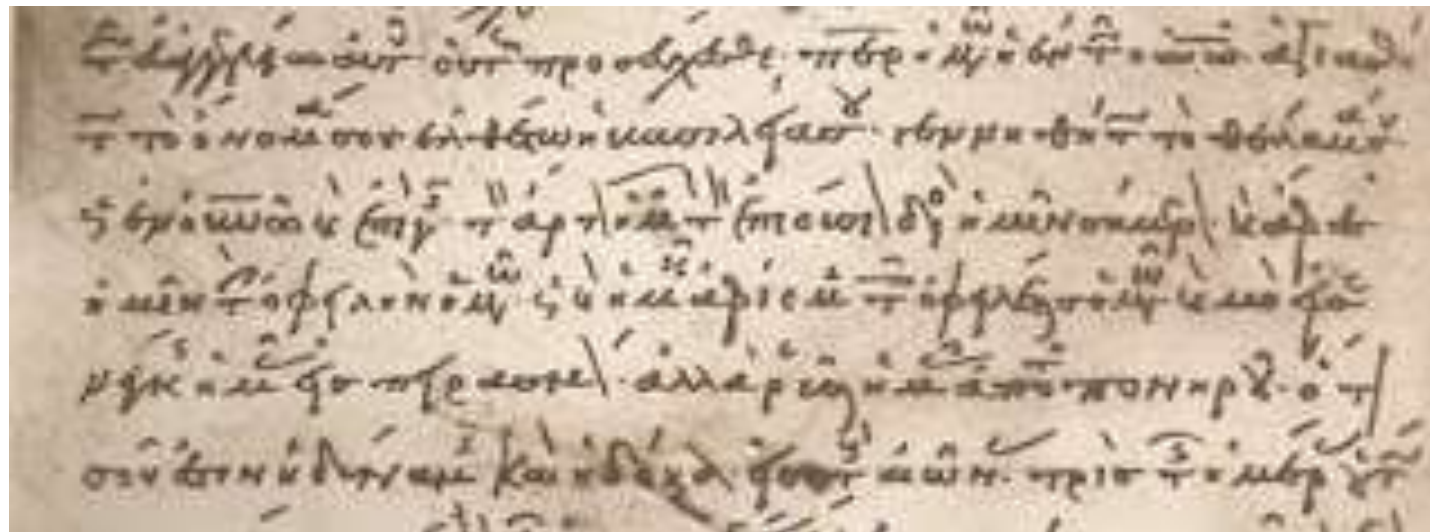 οὕτ προσεύχεσθε· περ ἡμῶν ὁ ἐν τοῖς οὐνοῖς ἁγιασθή
τω τὸ ὄνομά σου ἐλθέτω ἡ βασιλεία σου· γεννηθήτω τὸ θέλημά σου
ὡς ἐν οὐνῶ καὶ ἐπὶ γῆς τὸν ἄρτον ἡμῶν τὸν ἐπιούσιον δὸς ἡμῖν σήμερον· καὶ ἄφες
ἡμῖν τὰ ὀφειλήματα ἡμῶν ὡς καὶ ἡμεῖς ἀφίεμεν τοῖς ὀφειλέταις ἡμῶν καὶ μὴ εἰσε
νέγκῃς ἡμᾶς εἰς πειρασμόν· ἀλλὰ ῥῦσαι ἡμᾶς ἀπὸ τοῦ πονηροῦ· ὅτι
σοῦ ἐστιν ἡ δύναμις καὶ ἡ δόξα εἰς τοὺς αἰῶνας·